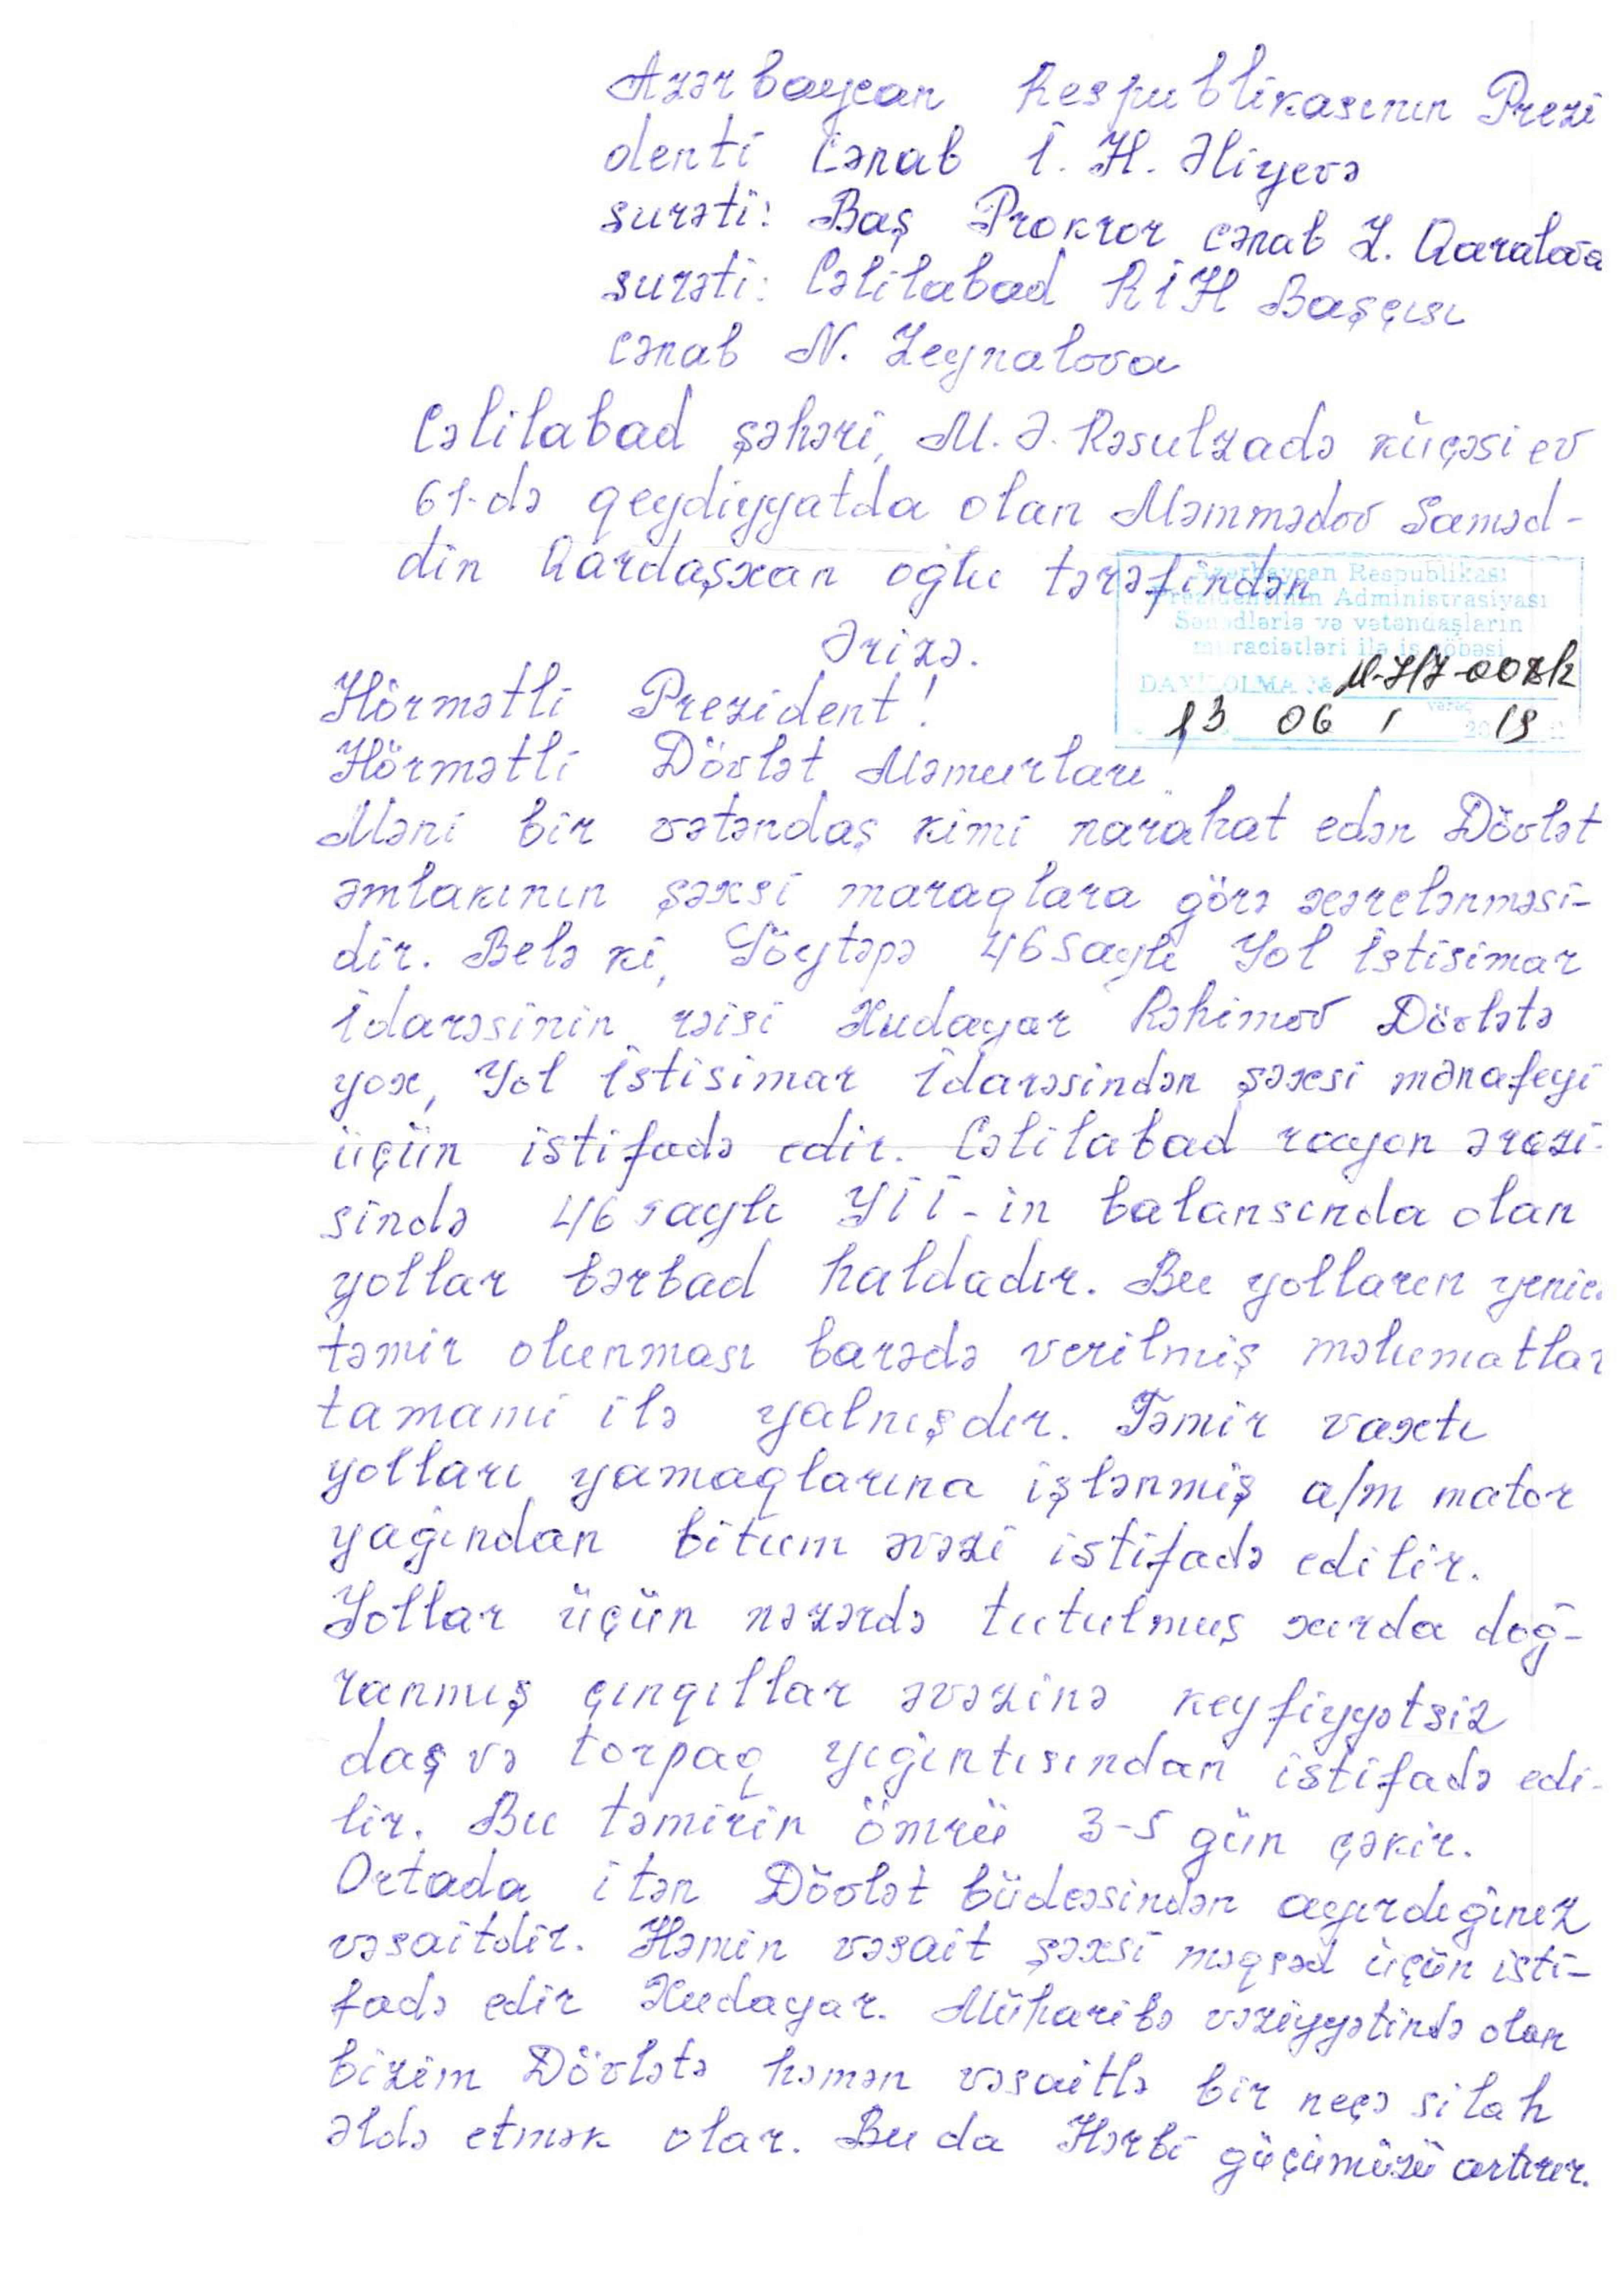 Azərbaycan Respublikasının Prezi
denti Cənab İ. H. Əliyevə
surəti: Baş Prokror cənab Z. Qaralova
surəti: Cəlilabad RİH Başçısı
cənab N. Zeynalova
Cəlilabad şəhəri, M. Ə. Rəsulzadə küçəsi ev
61-də qeydiyyatda olan Məmmədov Saməd-
din Qardaşxan oğlu tərəfindən
Azərbaycan Respublikası
Prezidentinin Administrasiyası
Sənədlərlə və vətəndaşların
müraciətləri ilə iş şöbəsi
Ərizə.
DAXİLOLMA №
vərəq
13 06 2019
Hörmətli Prezident!
Hörmətli Dövlət Məmurları
Məni bir vətəndaş kimi narahat edən Dövlət
əmlakının şəxsi maraqlara görə xərclənməsi-
dir. Belə ki, Göytəpə 46 saylı Yol İstisimar
İdarəsinin rəisi Xudayar Rəhimov Dövlətə
yox, Yol İstisimar İdarəsindən şəxsi mənafeyi
üçün istifadə edir. Cəlilabad rayon ərazi-
sində 46 saylı Yİİ-in balansında olan
yollar bərbad haldadır. Bu yolların
təmir olunması barədə verilmiş məlumatlar
tamami ilə yalnışdır. Təmir vaxtı
yolları yamaqlarına işlənmiş a/m mator
yağından bitum əvəzi istifadə edilir.
Yollar üçün nəzərdə tutulmuş xırda doğ-
ranmış çınqıllar əvəzinə keyfiyyətsiz
daş və torpaq yığıntısından istifadə edi-
lir. Bu təmirin ömrü 3-5 gün çəkir.
Ortada itən Dövlət büdcəsindən ayırdığınız
vəsaitdir. Həmin vəsait şəxsi məqsəd üçün isti-
fadə edir Xudayar. Müharibə vəziyyətində olan
bizim Dövlətə həmən vəsaitlə bir neçə silah
əldə etmək olar. Bu da Hərbi güçümüzü artırır.